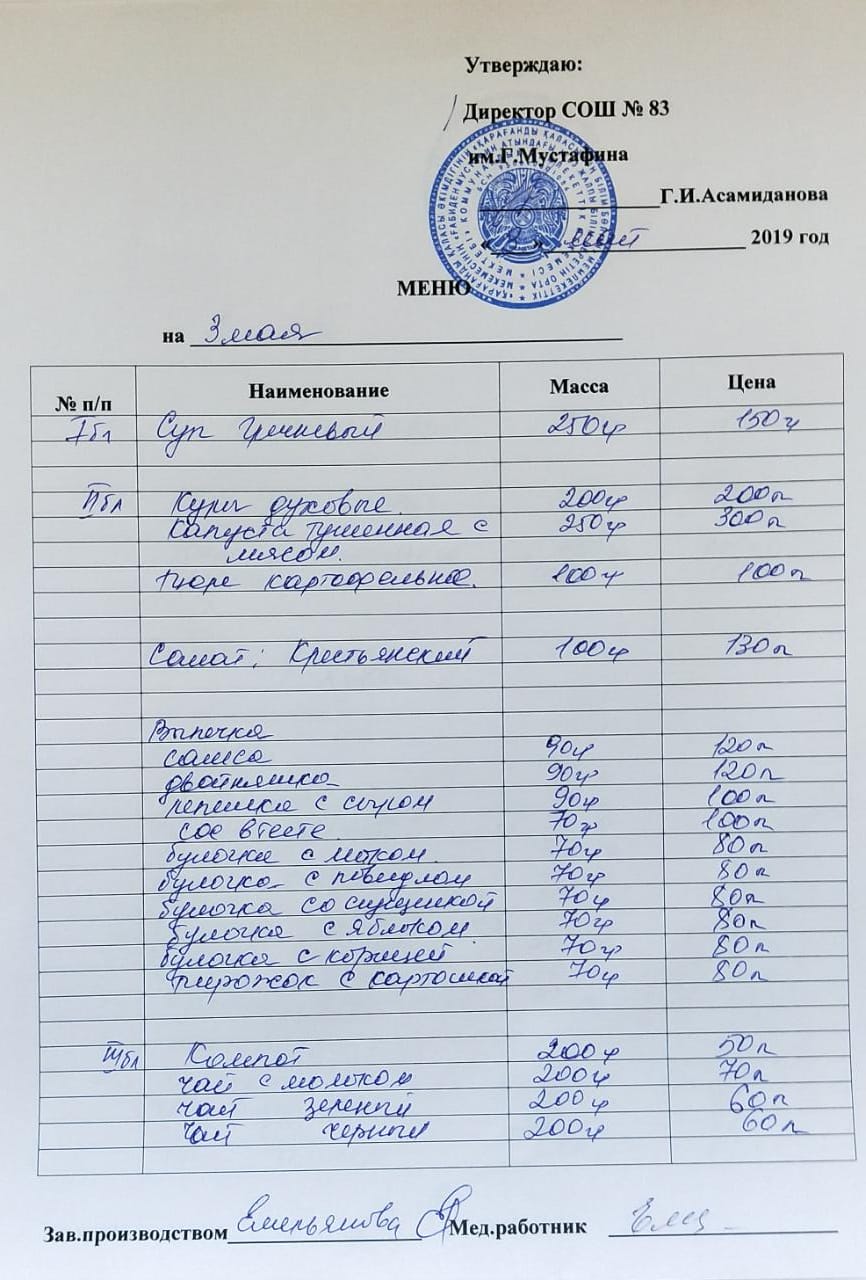 Утверждаю:
Директор СОШ № 83
им.Г.Мустафина
Г.И.Асамиданова
«3» май 2019 год
МЕНЮ
на 3 мая
№ п/п Наименование Масса Цена
I бл Суп гречневый 250гр 150т
II бл Куры духовые. 200гр 200т
Капуста тушенная с 250гр 300т
мясом.
Пюре картофельное. 100гр 100т
Салат: Крестьянский 100гр 130т
Выпечка
самса 90гр 120т
двойняшка 90гр 120т
лепешка с сыром 90гр 100т
сос в тесте 70гр 100т
булочка с маком. 70гр 80т
булочка с повидлом 70гр 80т
булочка со сгущенкой 70гр 80т
булочка с яблоком 70гр 80т
булочка с корицей 70гр 80т
пирожок с картошкой 70гр 80т
III бл Компот 200гр 50т
чай с молоком 200гр 70т
чай зеленый 200гр 60т
чай черный 200гр 60т
Зав.производством Емельянова Мед.работник